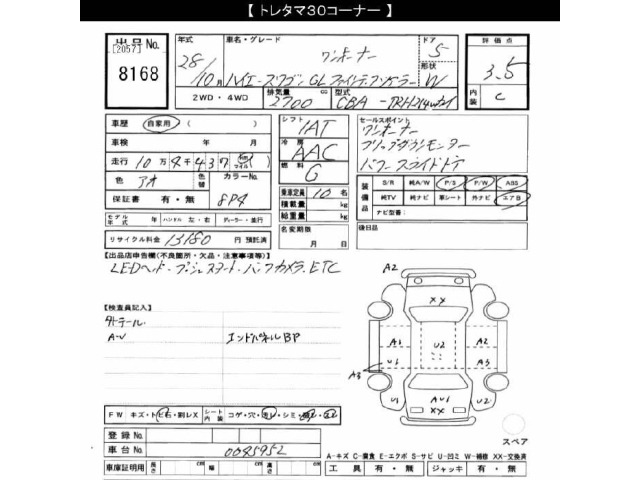 【 トレタマ30コーナー 】
出品No.
[2057]
8168
年式
28年
10月
車名・グレード
ワンオーナー
ハイエースワゴン GL ファインテックツアラー
ドア
5
形状
W
評価点
3.5
内装
C
2WD・4WD
排気量
2700 cc
型式
CBA-TRH214W
車歴
自家用 ( )
車検 年 月
走行 10万4千437
色 アオ
色替
カラーNo.
8P4
保証書 有・無
モデル年式 年 ハンドル 左・右 ディーラー・並行
リサイクル料金 13180 円 預託済
シフト
IAT
冷房
AAC
燃料
G
乗車定員 10 名
積載量 kg
総重量 kg
名変期限
月 日
セールスポイント
ワンオーナー
フリップダウンモニター
パワースライドドア
装備品
S/R 純A/W P/S P/W ABS
純TV 純ナビ 革シート 外ナビ エアB
ナビ型番:
後日品
【出品店申告欄(不良箇所・欠品・注意事項等)】
LEDヘッド・プッシュスタート・バックカメラ.ETC
【検査員記入】
外テール.
A-U エンドパネルBP
A2
XX
A1 U2 A1
U1 A3
A3
U1 AU1 U2
XX
スペア
FW キズ・トビ石・割レX シート内装 コゲ・穴・汚レ・シミ
登録No.
車台No. 0045952
車庫証明用 長さ cm 幅 cm 高さ cm
A-キズ C-腐食 E-エクボ S-サビ U-凹ミ W-補修 XX-交換済
工具 有・無 ジャッキ 有・無